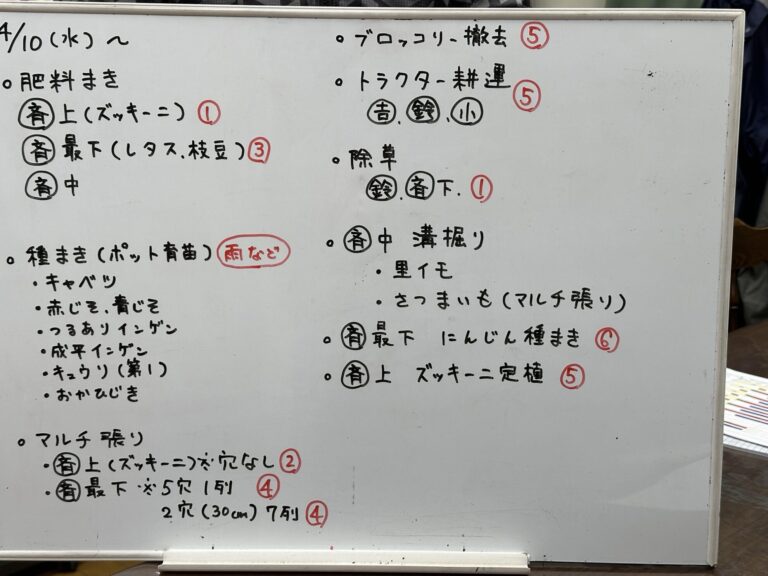 4/10(水)〜
○ 肥料まき
㊮上(ズッキーニ) ①
斉 最下(レタス、枝豆) ③
斉 中
○ 種まき(ポット育苗) 雨など
・キャベツ
・赤じそ、青じそ
・つるありインゲン
・成平インゲン
・キュウリ(第1)
・おかひじき
○ マルチ張り
・斉上(ズッキーニ)※穴なし ②
・斉最下 ※5穴1列 ④
2穴(30cm)7列 ④
○ ブロッコリー撤去 ⑤
○ トラクター耕運 ⑤
吉、鈴、小
○ 除草
鈴、斉下、①
○ 斉中 溝掘り
・里イモ
・さつまいも(マルチ張り)
○ 斉最下 にんじん種まき ⑥
○ 斉上 ズッキーニ定植 ⑤